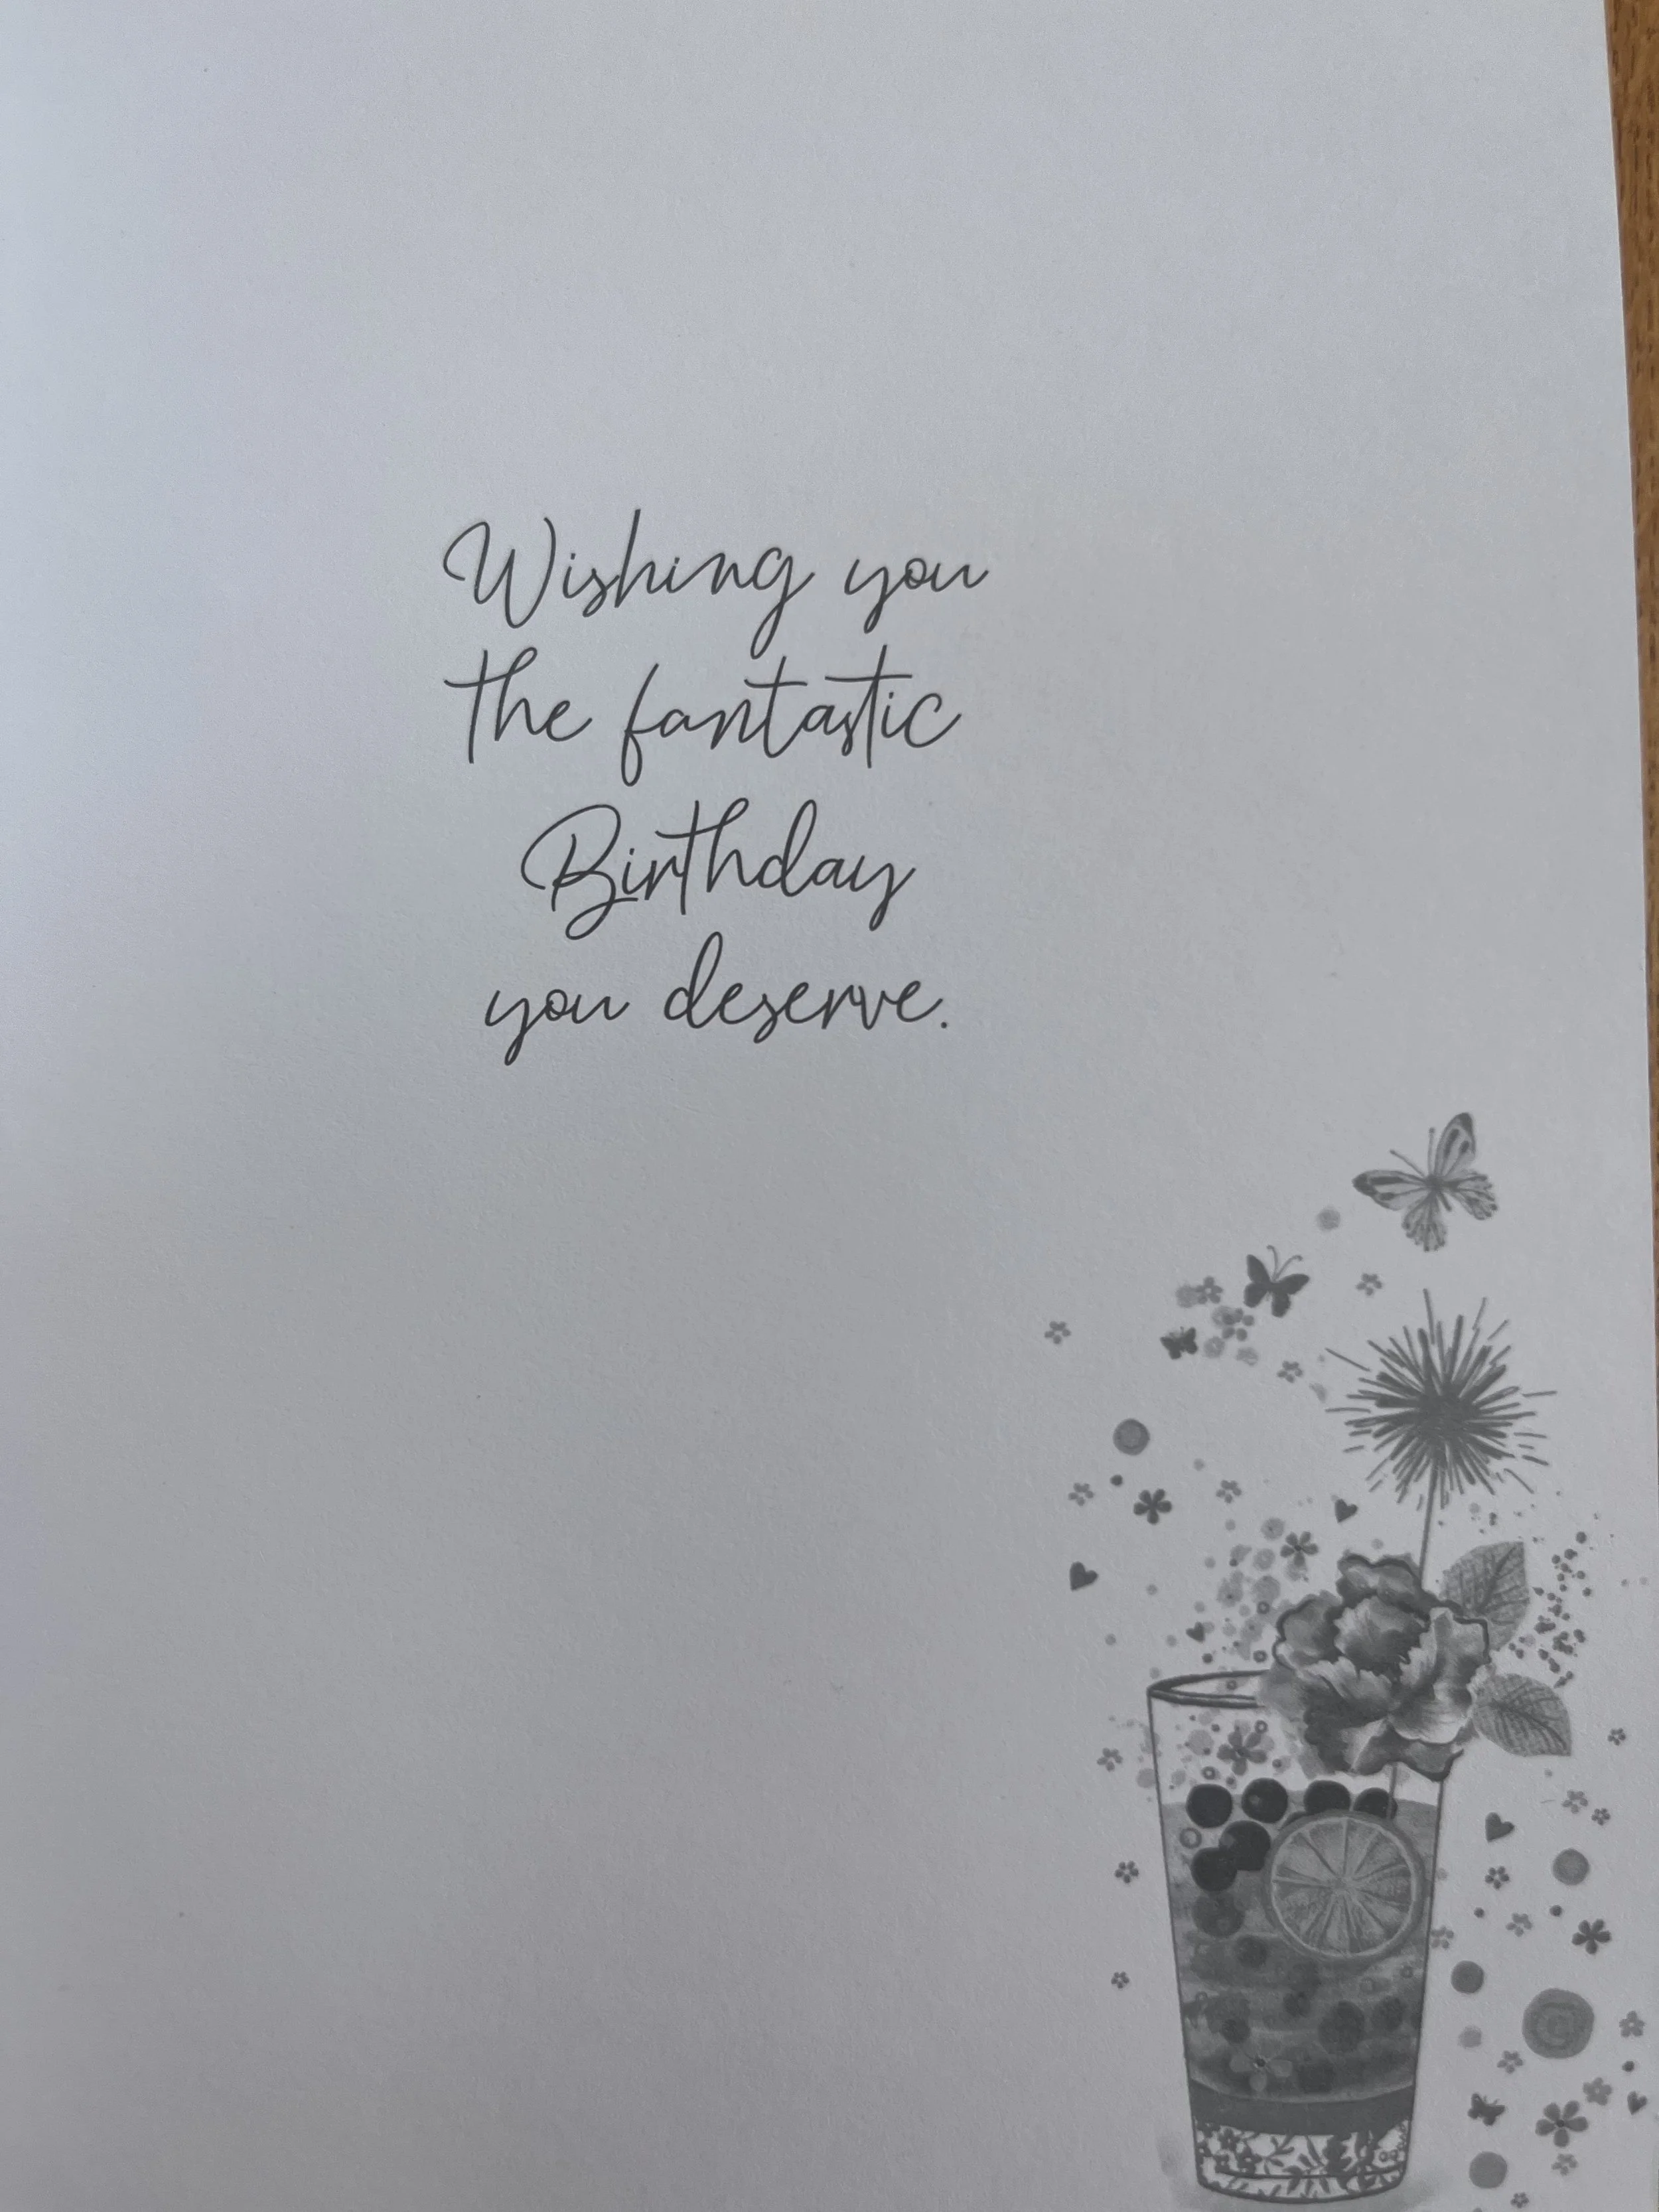 Wishing you
the fantastic
Birthday
you deserve.